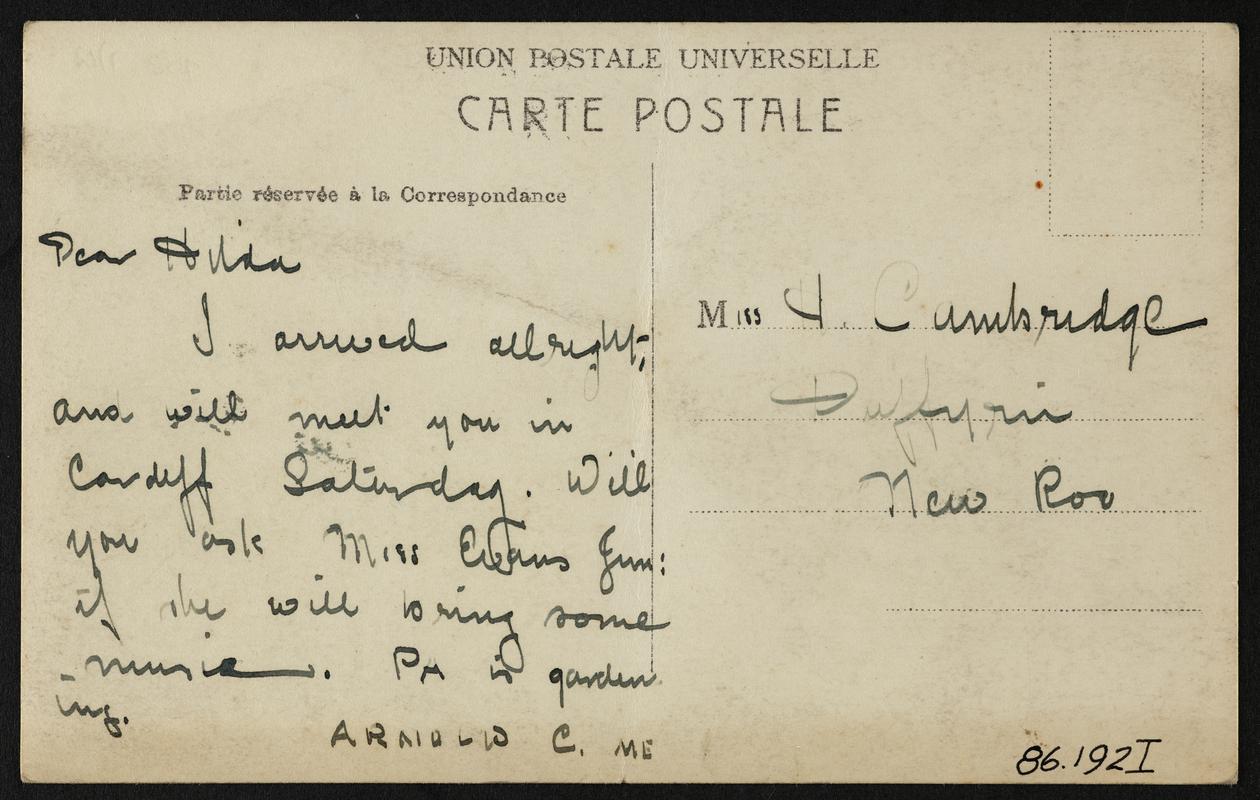 UNION POSTALE UNIVERSELLE
CARTE POSTALE
Partie réservée à la Correspondance
Dear Hilda
I arrived allright,
and will meet you in
Cardiff Saturday. Will
you ask Miss Evans Jun:
if she will bring some
music. PA is garden
ing.
ARNOLD C. ME
Miss H. Cumbridge
Duffyrin
New Roo
86.192I